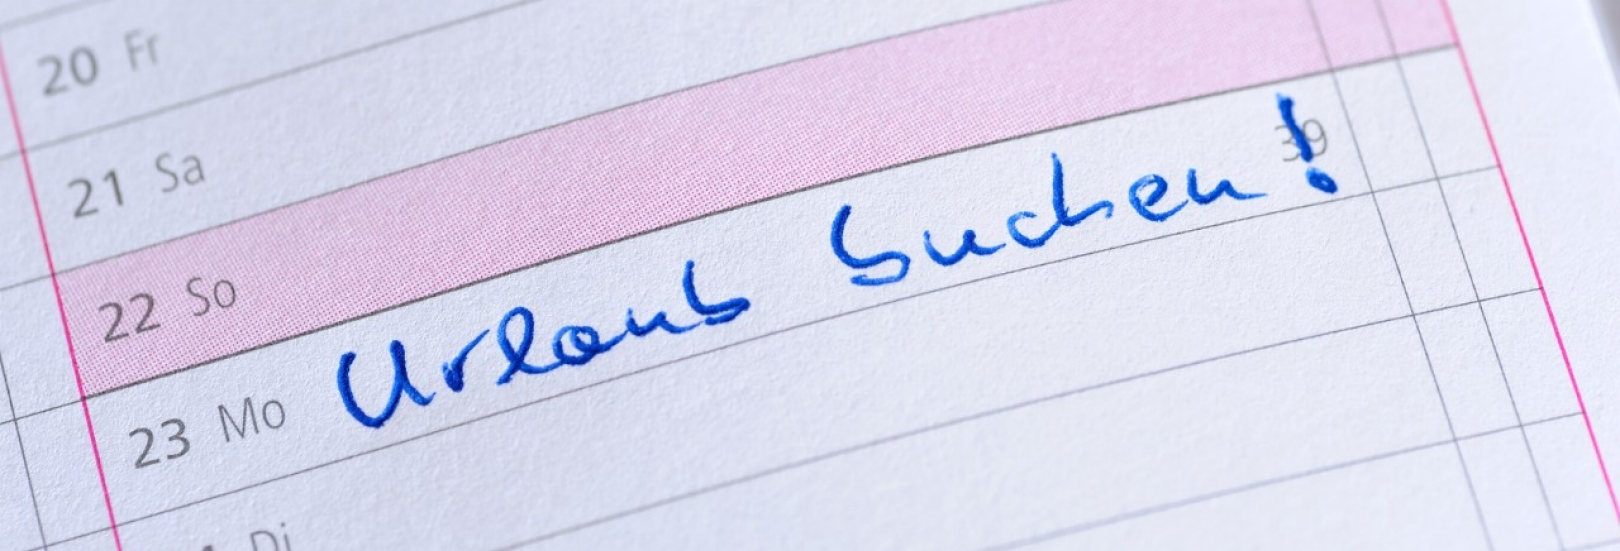 20 Fr
21 Sa
22 So
23 Mo Urlaub buchen! 39
Di